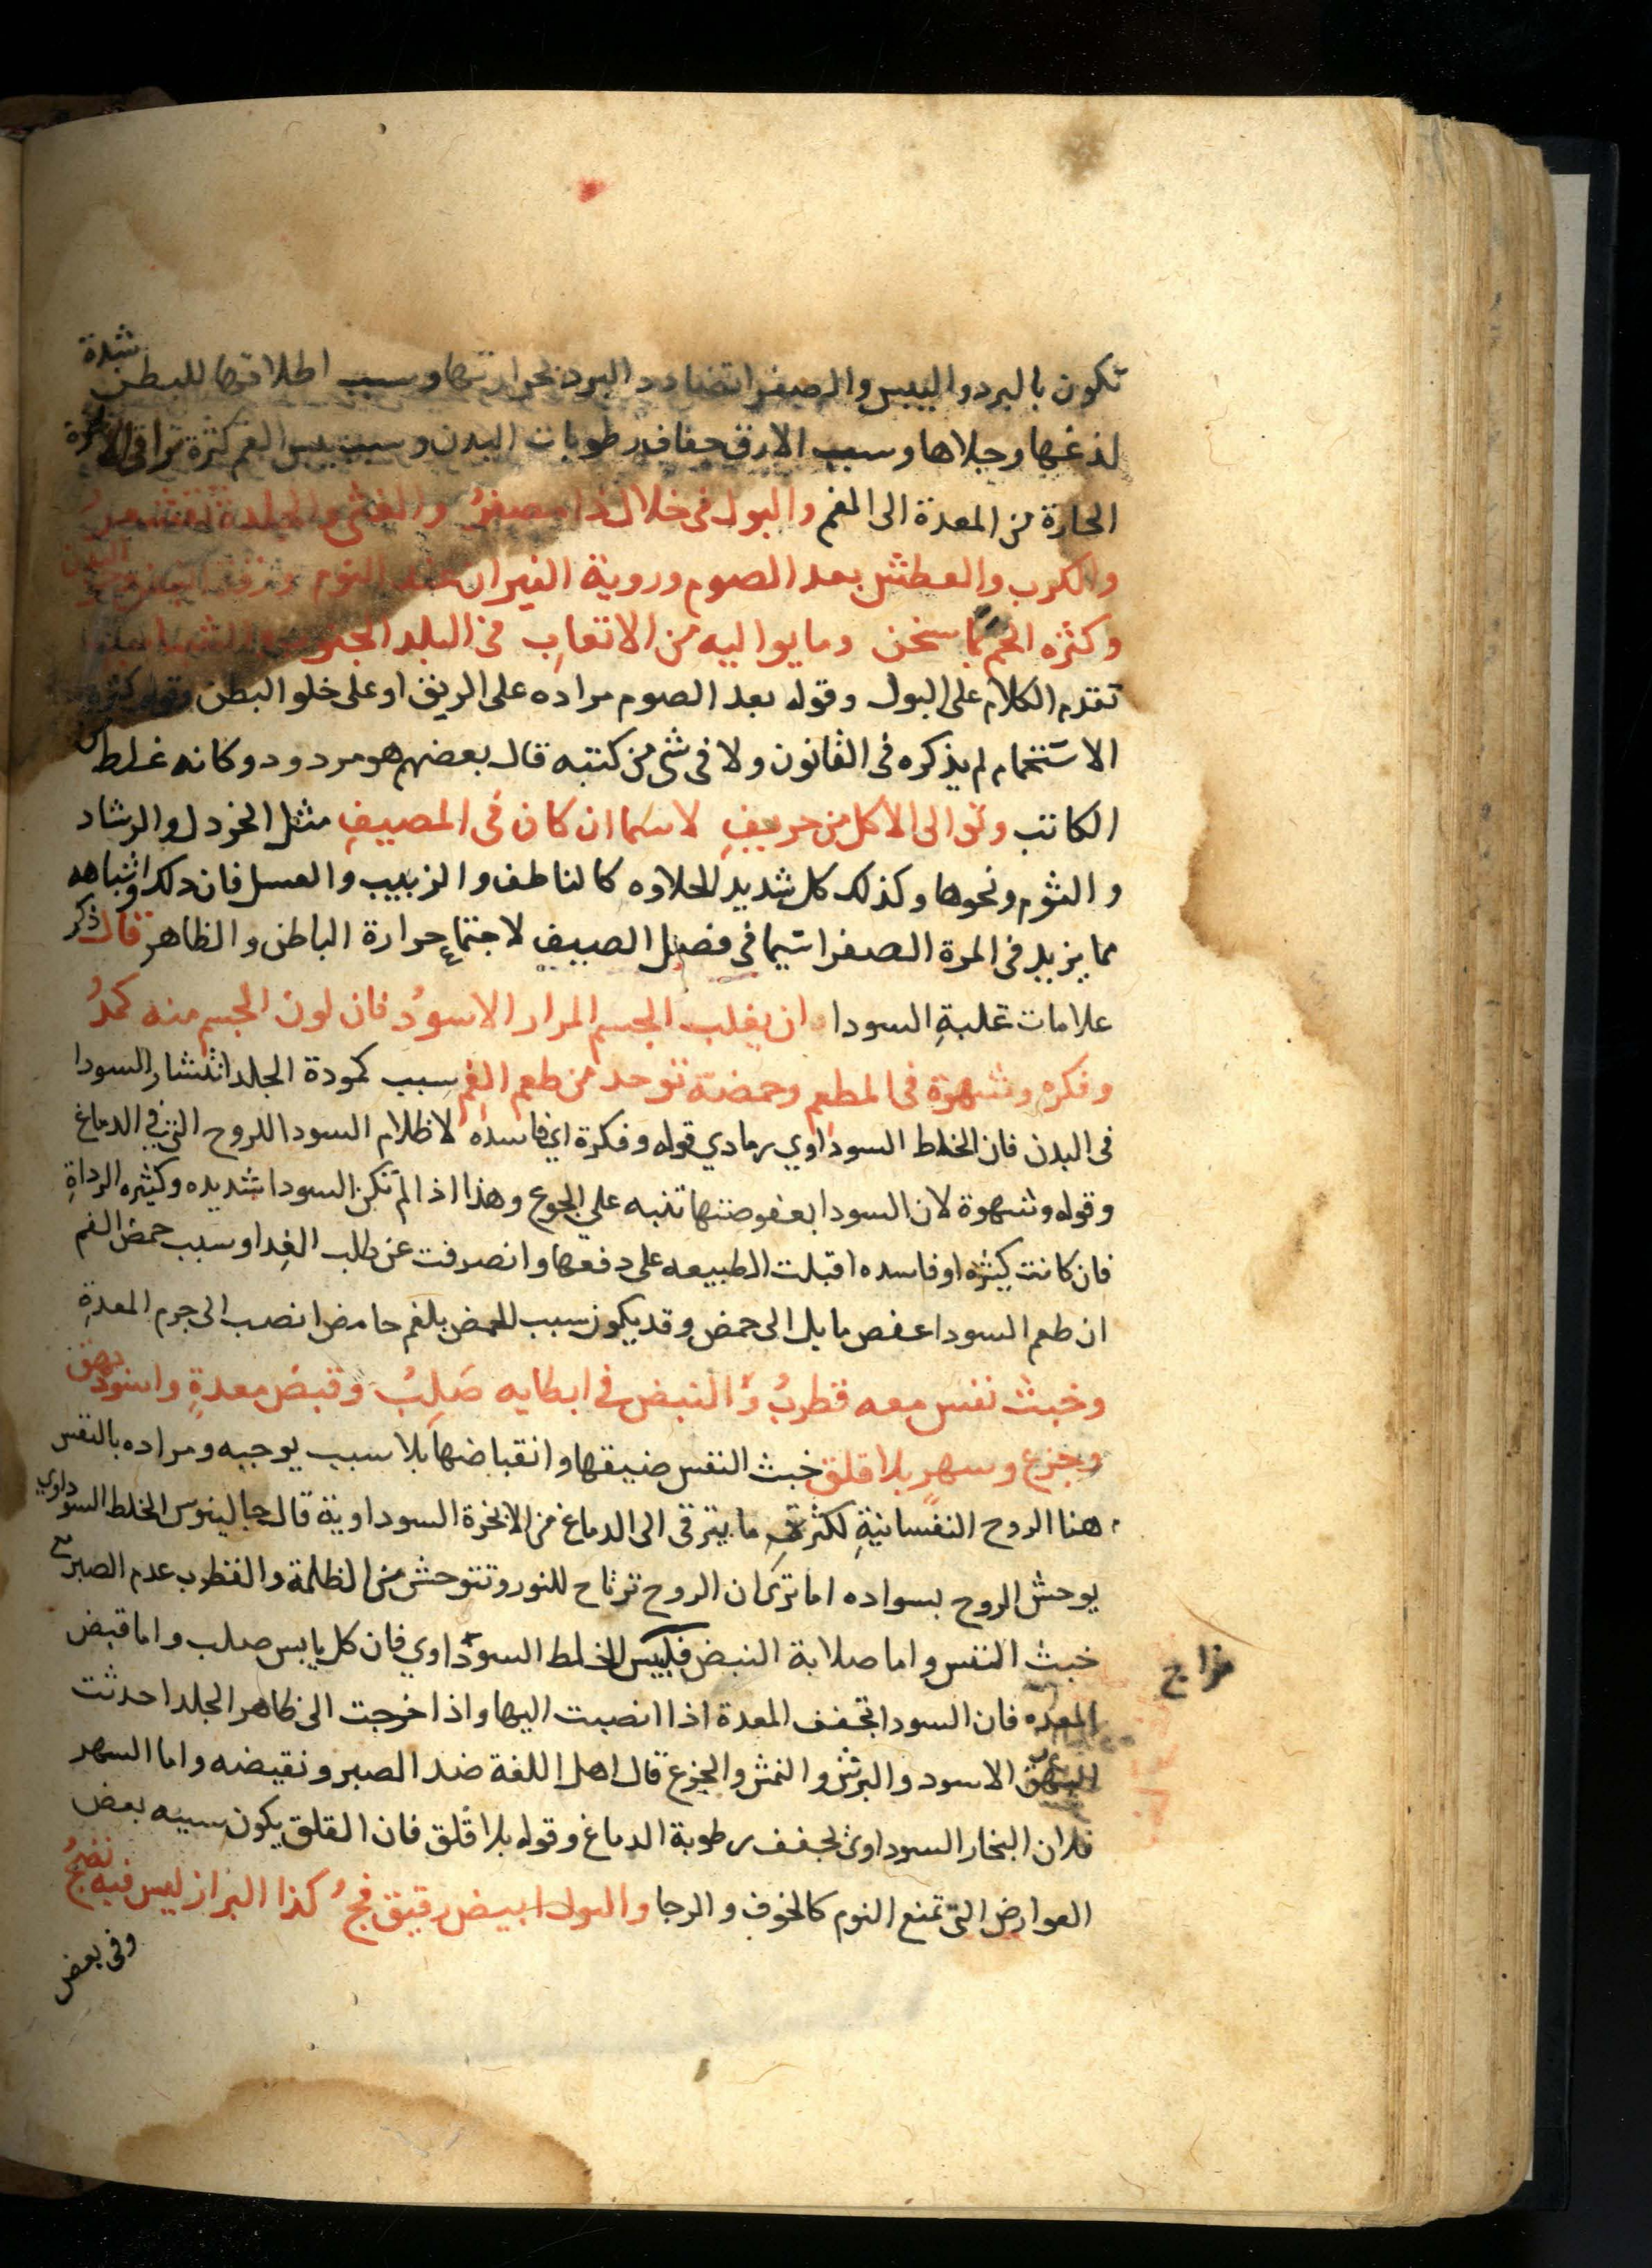 تكون بالبرد واليبس والصفرا تضادد البرد بحرارتها وسبب اطلاقها للبطن شدة
لذغها وجلاها وسبب الارق جفاف رطوبات البدن وسبب يبس الفم كثرة تراقي الابخرة
الحارة من المعدة الى الفم والبول في خلال ذا مصفرُ والغثى والجلدة تقشعرُ
والكرب والعطش بعد الصوم وروية النيران عند النوم
وكثره الحم بما سخن وما يواليه من الاتعابِ في البلد الجنوب
تقدم الكلام على البول وقوله بعد الصوم مراده على الريق او على خلو البطن وقوله كثره
الاستحمام لم يذكره في القانون ولا في شي من كتبه قال بعضهم هو مردود وكانه غلط من
الكاتب وتوالى الاكل من حريفِ لا سيما ان كان في المصيفِ مثل الخردل والرشاد
والثوم ونحوها وكذلك كل شديد الحلاوه كالناطف والزبيب والعسل فان ذلك واشباهه
مما يزيد في المرة الصفرا سيما في فصل الصيف لاجتماع حرارة الباطن والظاهر قال ذكر
علامات غلبةِ السودا وان يغلب الجسم المرار الاسودُ فان لون الجسم منه كمدُ
وفكره وشهوة في المطعم وحمضة توجد من طعم الفم سبب كمودة الجلد انتشار السودا
في البدن فان الخلط السوداوي رمادي قوله وفكرة اي فاسده لاظلام السودا للروح التي في الدماغ
وقوله وشهوة لان السودا بعفوصتها تنبه علي الجوع وهذا اذا لم تكن السودا شديده وكثيره الرداةِ
فان كانت كثيره او فاسده اقبلت الطبيعه على دفعها وانصرفت عن طلب الغدا وسبب حمض الفم
ان طعم السودا عفص مايل الى حمض وقد يكون سبب للحمض بلغم حامض انصب الى جرم المعدةِ
وخبث نفس معه قطربُ والنبض في ابطايه صَلِبُ وقبض معدةٍ واسود بهق
وجزع وسهرٍ بلا قلق خبث النفس ضيقها وانقباضها بلا سبب يوجبه ومراده بالنفس
هنا الروح النفسانيةِ لكثرة ما يترقى الى الدماغ من الابخرة السوداوية قال جالينوس الخلط السوداوي
يوحش الروح بسواده اما ترى ان الروح ترتاح للنور وتتوحش من الظلمة والقطرب عدم الصبر مع
خبث النفس واما صلابة النبض فليبس الخلط السوداوي فان كل يابس صلب واما قبض
مزاج
المعده فان السودا تجفف المعدة اذا انصبت اليها واذا خرجت الى ظاهر الجلد احدثت
البهق الاسود والبرش والنمش والجزع قال اهل اللغة ضد الصبر ونقيضه واما السهر
فلان البخار السوداوي يجفف رطوبة الدماغ وقوله بلا قلق فان القلق يكون سببه بعض
العوارض التي تمنع النوم كالخوف والرجا والبول ابيض رقيق فجُ كذا البراز ليس فيه نضجُ
وفي بعض